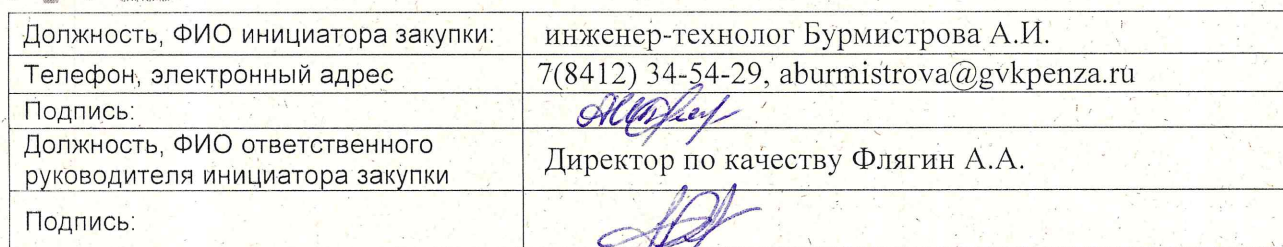 Должность, ФИО инициатора закупки: инженер-технолог Бурмистрова А.И.
Телефон, электронный адрес 7(8412) 34-54-29, aburmistrova@gvkpenza.ru
Подпись:
Должность, ФИО ответственного
руководителя инициатора закупки Директор по качеству Флягин А.А.
Подпись: